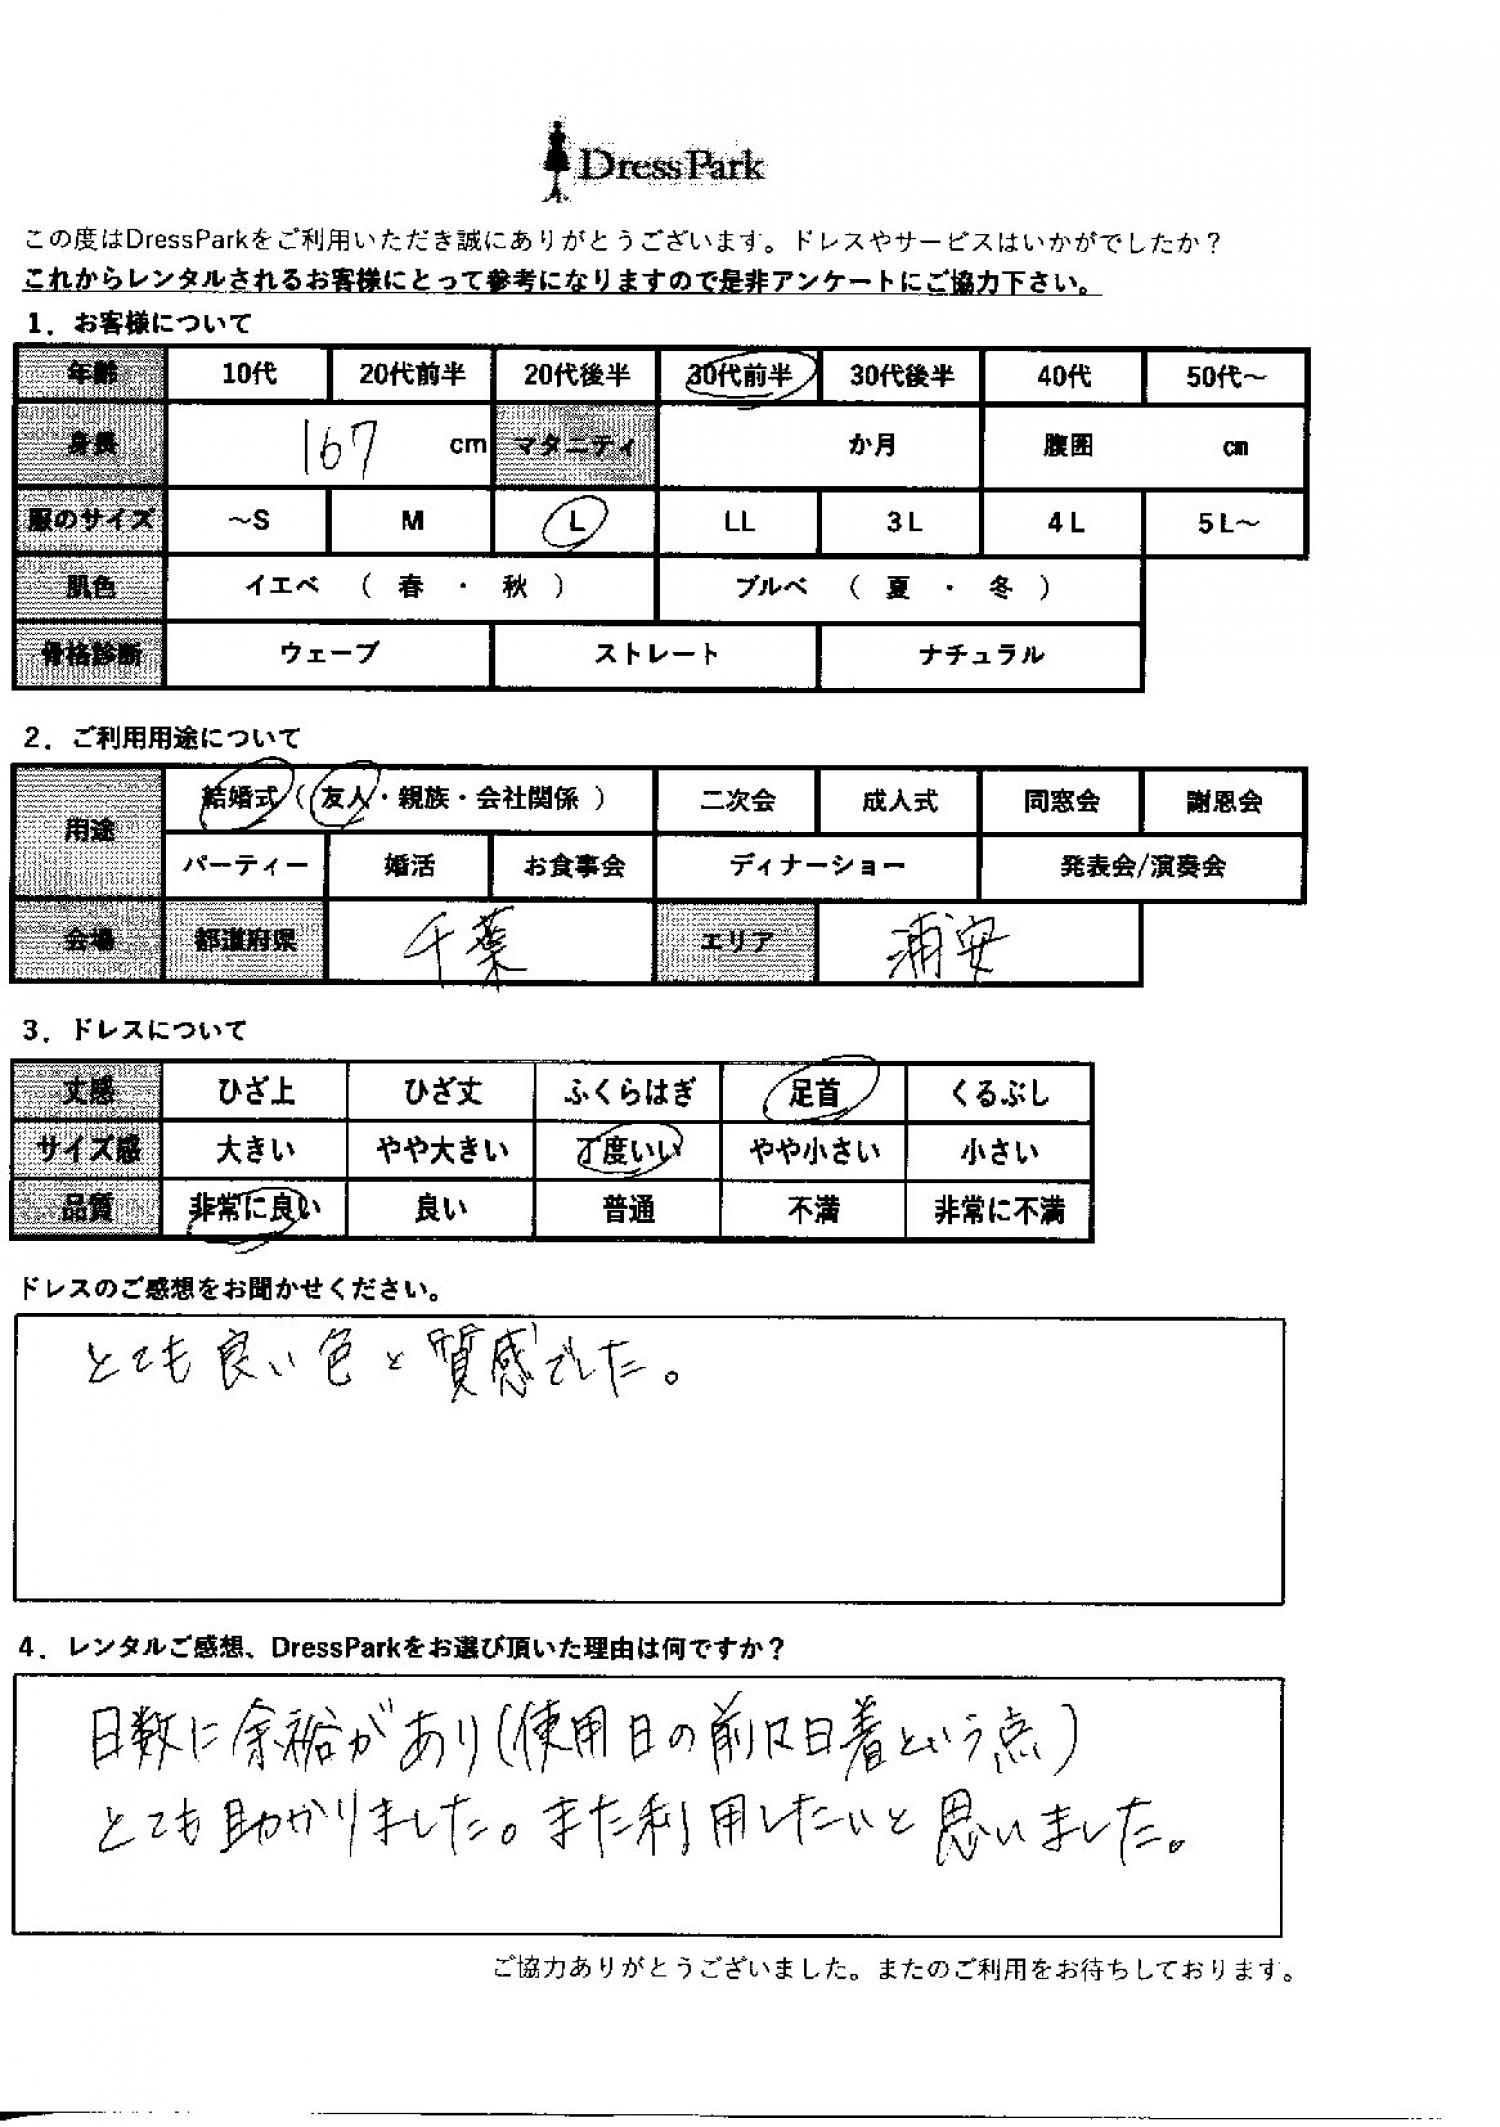 DressPark
この度はDressParkをご利用いただき誠にありがとうございます。ドレスやサービスはいかがでしたか？
これからレンタルされるお客様にとって参考になりますので是非アンケートにご協力下さい。
1．お客様について
年齢 10代 20代前半 20代後半 30代前半 30代後半 40代 50代～
身長 167 cm マタニティ か月 腹囲 cm
服のサイズ ～S M L LL 3L 4L 5L～
肌色 イエベ （ 春 ・ 秋 ） ブルベ （ 夏 ・ 冬 ）
骨格診断 ウェーブ ストレート ナチュラル
2．ご利用用途について
用途 結婚式（ 友人・親族・会社関係 ） 二次会 成人式 同窓会 謝恩会
パーティー 婚活 お食事会 ディナーショー 発表会/演奏会
会場 都道府県 千葉 エリア 浦安
3．ドレスについて
丈感 ひざ上 ひざ丈 ふくらはぎ 足首 くるぶし
サイズ感 大きい やや大きい 丁度いい やや小さい 小さい
品質 非常に良い 良い 普通 不満 非常に不満
ドレスのご感想をお聞かせください。
とても良い色と質感でした。
4．レンタルご感想、DressParkをお選び頂いた理由は何ですか？
日数に余裕があり(使用日の前々日着という点)
とても助かりました。また利用したいと思いました。
ご協力ありがとうございました。またのご利用をお待ちしております。